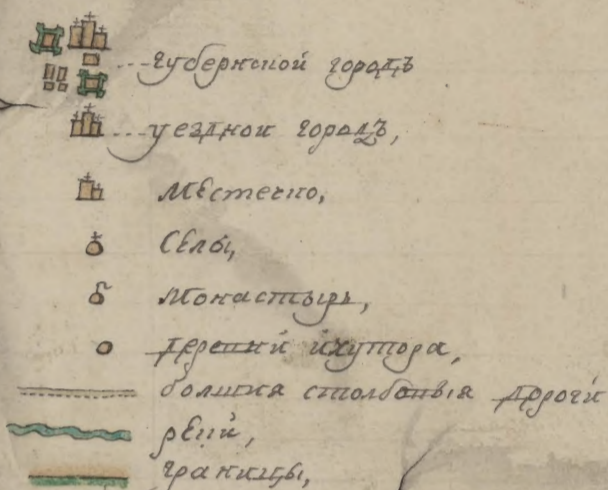 губернской городъ
уездной городъ,
Местечко,
Сёлы,
Монастырь,
деревни ихутора,
болшия столбовыя дороги
реки,
границы,